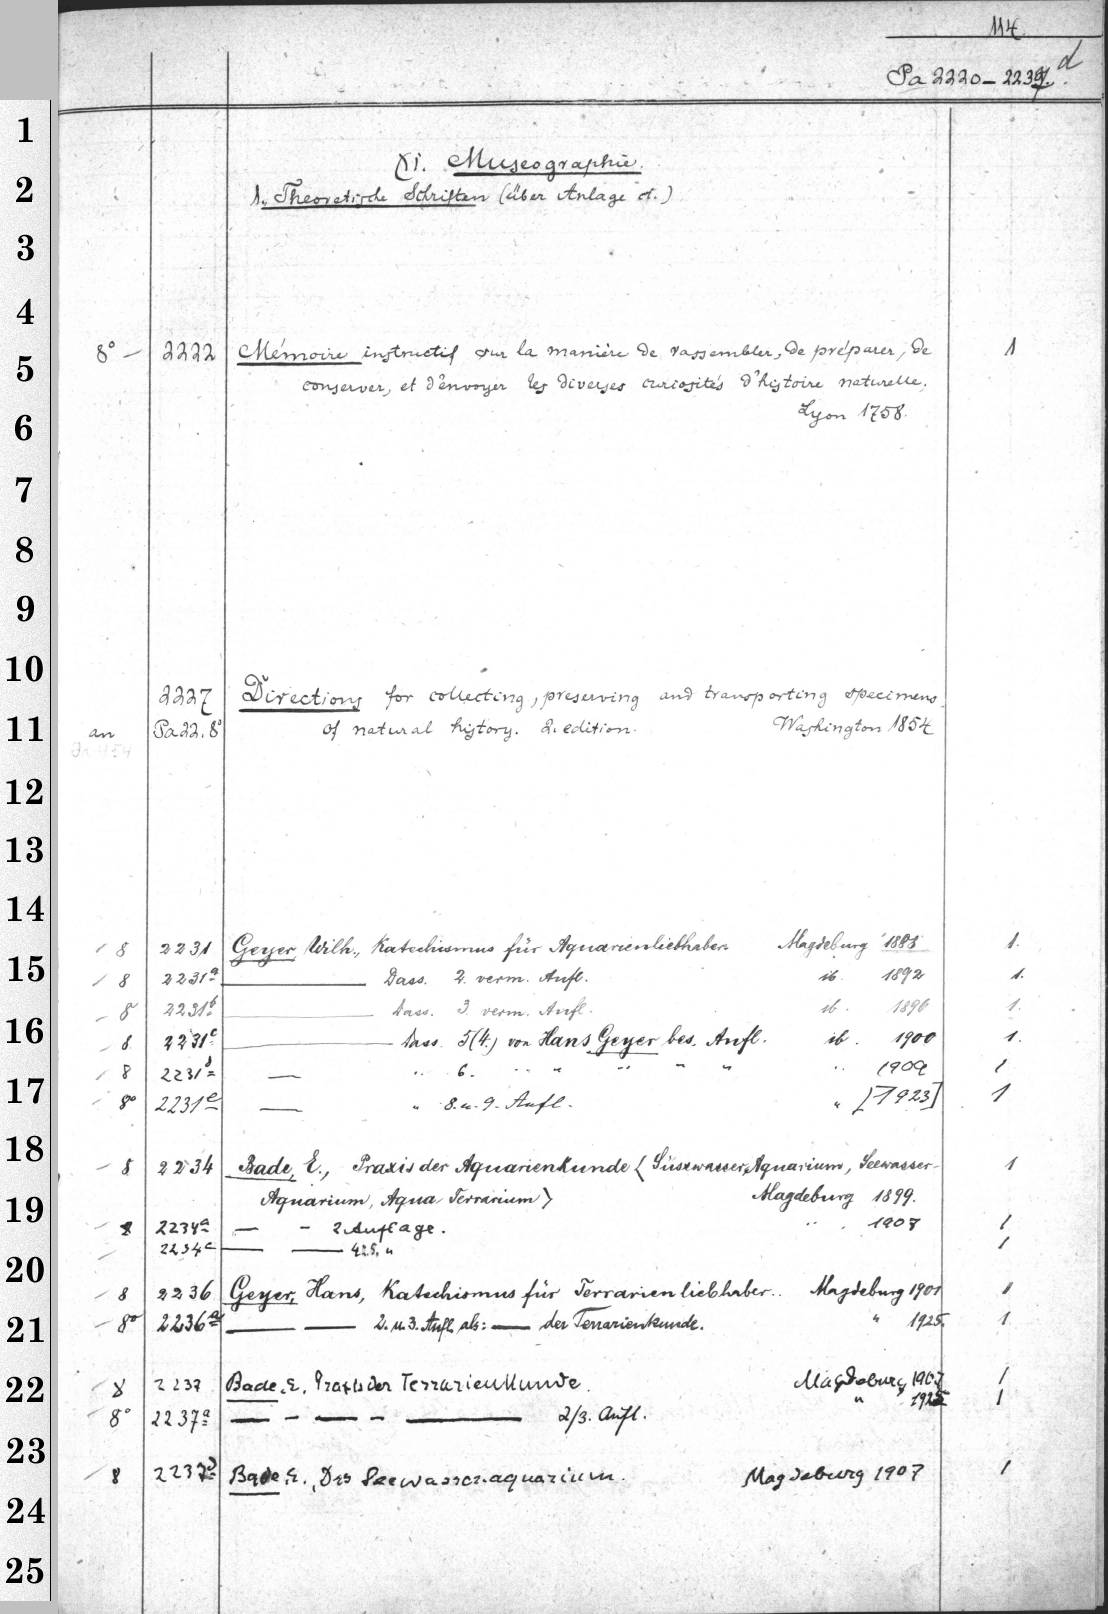 114
Pa 2220–2237 d
XI. Museographie.
1., Theoretische Schriften (über Anlage et.)
8° – 2222 Mémoire instructif sur la manière de rassembler, de préparer, de 1
conserver, et d'envoyer les diverses curiosités d'histoire naturelle.
Lyon 1758.
2227 Directions for collecting, preserving and transporting specimens
an Pa22.8° of natural history. 2. edition. Washington 1854
8 2231 Geyer, Wilh., Katechismus für Aquarienliebhaber. Magdeburg 1 1.
8 2231a Dass. 2. verm. Aufl. ib. 1892 1.
8 2231b Dass. 3. verm. Aufl. ib. 1896 1.
8 2231c Dass. 5(4.) von Hans Geyer bes. Aufl. ib. 1900 1.
8 2231d — " 6. " " " " " " 1909 1
8° 2231e — " 8. u. 9. Aufl. " [1923] 1
8 2234 Bade, E., Praxis der Aquarienkunde (Süsswasser-Aquarium, Seewasser- 1
Aquarium, Aqua Terrarium) Magdeburg 1899.
8 2234a — – 2 Auflage. " 1907 1
2234c — — 4.u.5. " 1
8 2236 Geyer, Hans, Katechismus für Terrarienliebhaber.. Magdeburg 1901 1
8° 2236a — — 2. u. 3. Aufl. als: — der Terrarienkunde. " 1925. 1
8 2237 Bade, E. Praxis der Terrarienkunde. Magdeburg 1907 1
8° 2237a — – — – — 2/3. Aufl. " 1
8 2237d Bade, E., Das Seewasser-aquarium. Magdeburg 1907 1
1
2
3
4
5
6
7
8
9
10
11
12
13
14
15
16
17
18
19
20
21
22
23
24
25